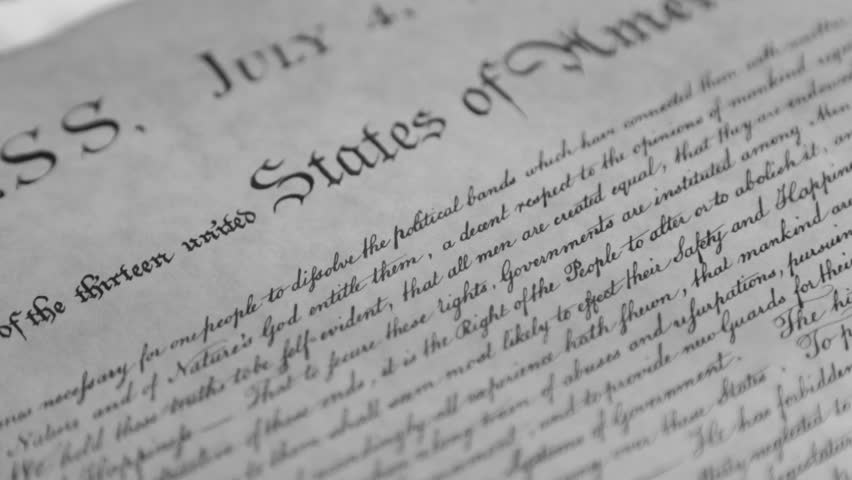 SS, JULY 4,
of the thirteen united States of Ame
necessary for one people to dissolve the political bands which have connected them with another
Nature and of Nature's God entitle them, a decent respect to the opinions of mankind requ
We hold these truths to be self-evident, that all men are created equal, that they are endowed
Happiness — That to secure these rights, Governments are instituted among Men
of these ends, it is the Right of the People to alter or to abolish it, an
to them shall seem most likely to effect their Safety and Happine
accordingly all experience hath shewn, that mankind are
when a long train of abuses and usurpations, pursuin
and to provide new Guards for their
Systems of Government. The hi
over these States. To p
He has forbidden
neglected to